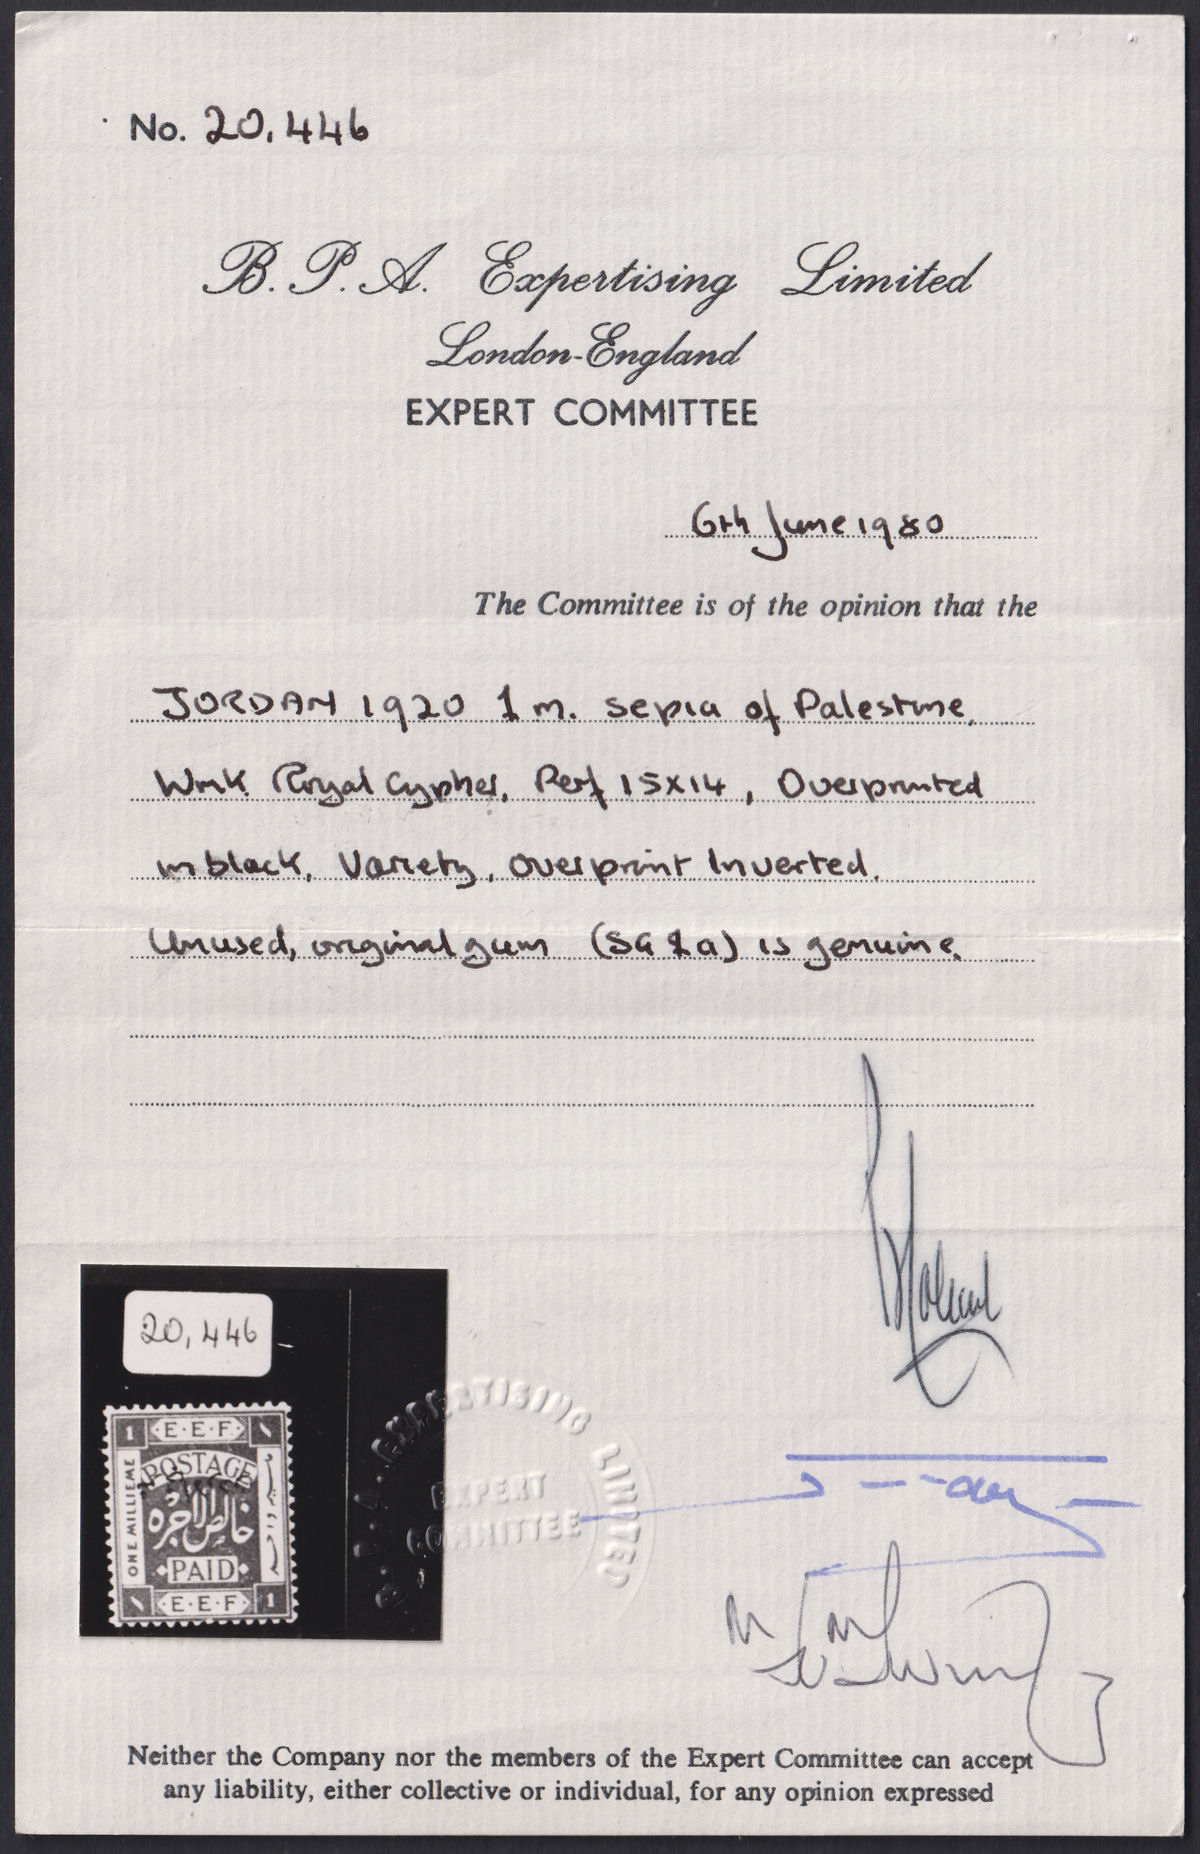 No. 20,446
B. P. A. Expertising Limited
London-England
EXPERT COMMITTEE
6th June 1980
The Committee is of the opinion that the
JORDAN 1920 1 m. sepia of Palestine,
Wmk Royal Cypher, Perf 15x14, Overprinted
in black, Variety, overprint Inverted.
Unused, original gum (SG 1a) is genuine.
20,446
1 E·E·F ١
POSTAGE
ONE MILLIEME
خالص الاجره
PAID
١ E·E·F 1
B.P.A. EXPERTISING LIMITED
EXPERT
COMMITTEE
Neither the Company nor the members of the Expert Committee can accept
any liability, either collective or individual, for any opinion expressed